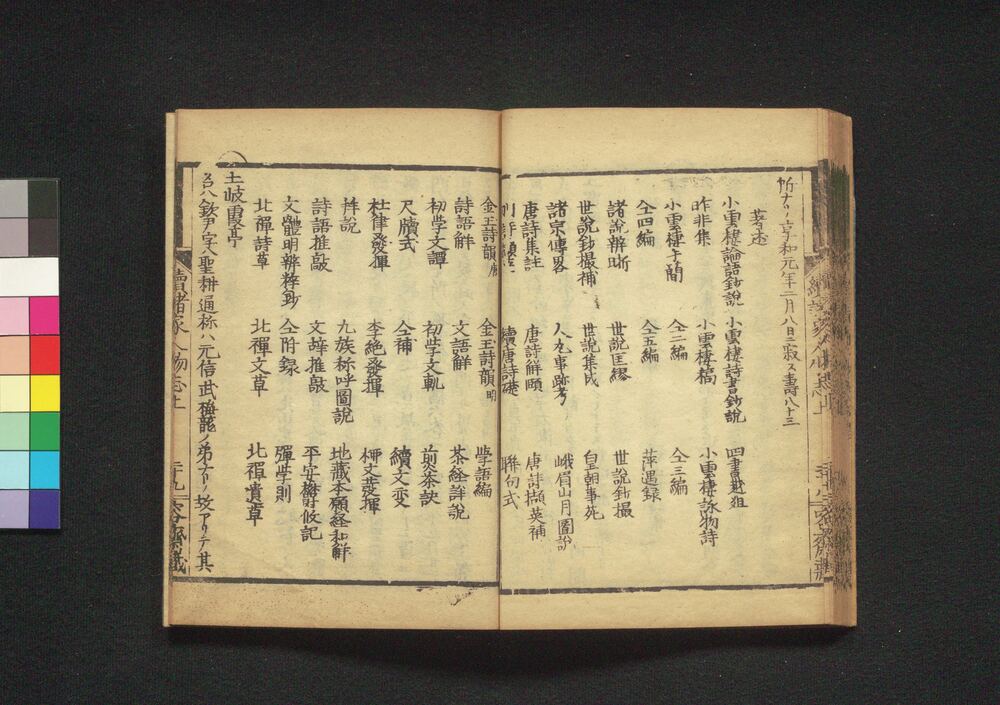 折ナリ享和元年二月八日ニ寂ス壽八十三
著述
小雲棲論語鈔說 小雲棲詩書鈔說 四書越俎
昨非集 小雲棲稿 小雲棲詠物詩
小雲棲手簡 仝二編 仝三編
仝四編 仝五編 萍遇録
諸說辨断 世說匡繆 世說鈔撮
世說鈔撮補 世說集成 皇朝事苑
諸宗傳畧 人丸事跡考 峨眉山月圖說
唐詩集註 唐詩解頤 唐詩擷英補
續唐詩礎 聯句式
金王詩韻唐 金王詩韻明 學語編
詩語解 文語解 茶経詳說
初學文譚 初學文軌 煎茶訣
尺牘式 仝補 續文変
杜律發揮 李絶發揮 柳文發揮
詩語推敲 文辞推敲 平安
文體明辨粹鈔 仝附録 禪學則
北禪詩草 北禪文草 北禪遺草
觧說 九族称呼圖說 地藏本願経和解
土岐霞亭
名ハ欽尹字ハ聖耕通称ハ元信武梅龍ノ弟ナリ故アリテ其
續諸家人物志上 二十九